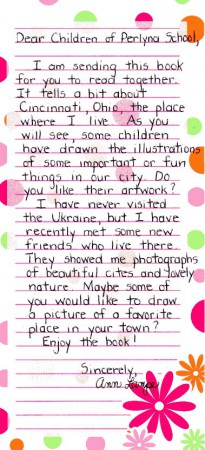 Dear Children of Perlyna School,
I am sending this book
for you to read together.
It tells a bit about
Cincinnati, Ohio, the place
where I live. As you
will see, some children
have drawn the illustrations
of some important or fun
things in our city. Do
you like their artwork?
I have never visited
the Ukraine, but I have
recently met some new
friends who live there.
They showed me photographs
of beautiful cites and lovely
nature. Maybe some of
you would like to draw
a picture of a favorite
place in your town?
Enjoy the book!
Sincerely,
Ann